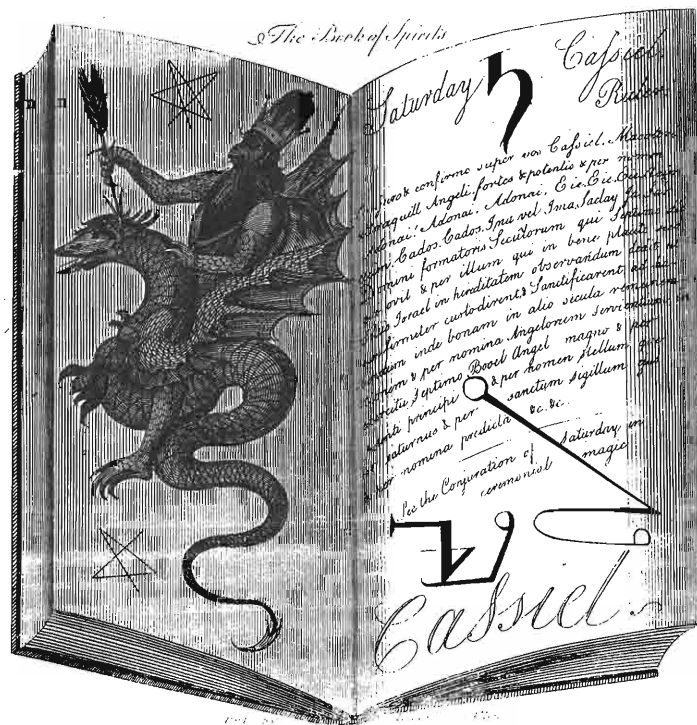 The Book of Spirits
Saturday ♄ Caſsiel
Ruler
& confirmo super vos Caſsiel, Macoton
Angeli fortes & potentis & per nomen
Adonai: Adonai: Adonai, Eie, Eie, Eie,
Cados, Cados, Ima vel Ima, Saday, Ja, Sar
Domini formatoris Seculorum qui Septimo die
& per illum qui in bene placito suo
Israel in hereditatem observandum dedit ut
firmeter custodirent, & Sanctificarent ad
inde bonam in alio secula remuneratio
& per nomina Angelorum servientium in
Septimo Booel Angel magno & per
principi & per nomen Stellum quae
Saturnus & per sanctum Sigillum
nomina predicta &c. &c.
See the Conjuration of Saturday in
ceremonial magic
Caſsiel